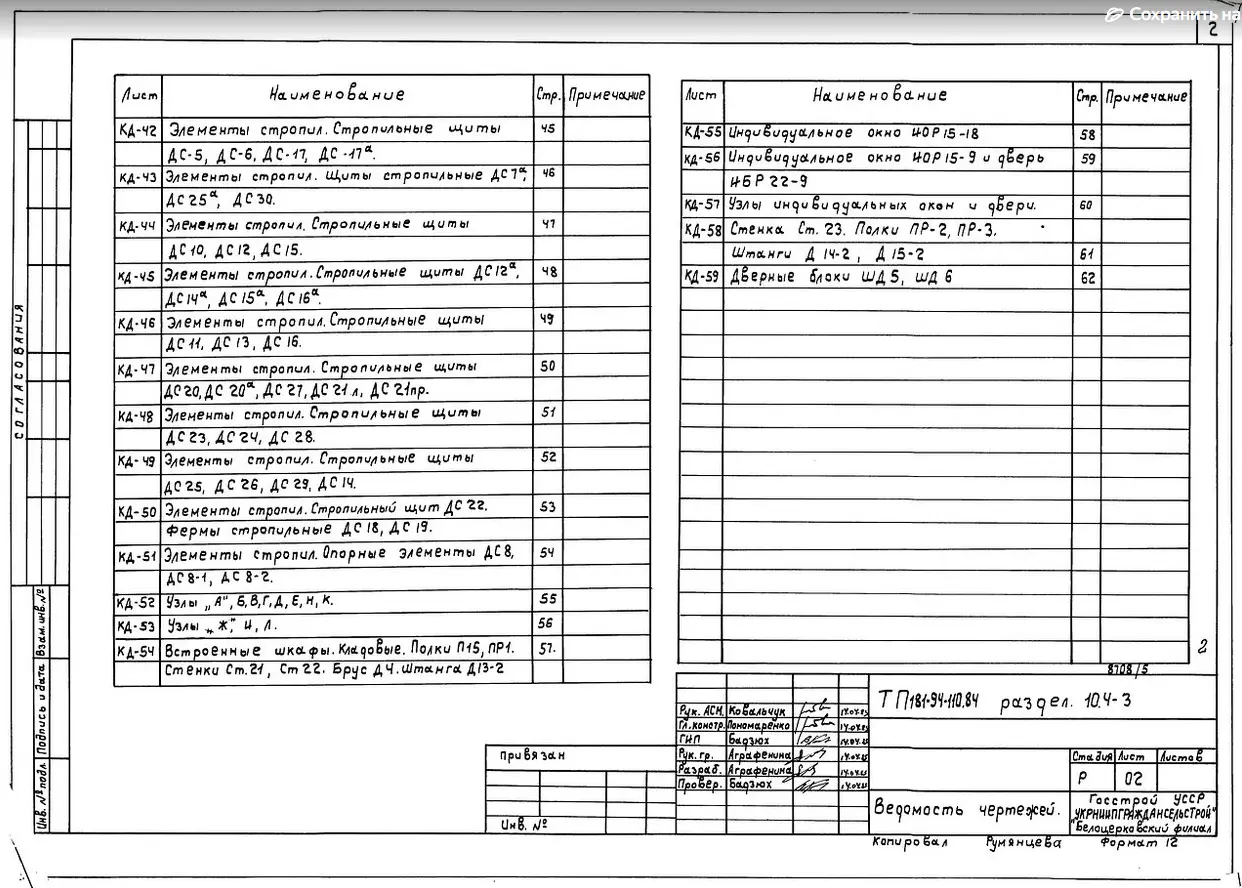 Сохранить на
2
Лист Наименование Стр. Примечание
КД-42 Элементы стропил. Стропильные щиты 45
ДС-5, ДС-6, ДС-17, ДС-17а.
КД-43 Элементы стропил. Щиты стропильные ДС7а, 46
ДС25а, ДС30.
КД-44 Элементы стропил. Стропильные щиты 47
ДС10, ДС12, ДС15.
КД-45 Элементы стропил. Стропильные щиты ДС12а, 48
ДС14а, ДС15а, ДС16а.
КД-46 Элементы стропил. Стропильные щиты 49
ДС11, ДС13, ДС16.
КД-47 Элементы стропил. Стропильные щиты 50
ДС20, ДС20а, ДС27, ДС21л, ДС21пр.
КД-48 Элементы стропил. Стропильные щиты 51
ДС23, ДС24, ДС28.
КД-49 Элементы стропил. Стропильные щиты 52
ДС25, ДС26, ДС29, ДС14.
КД-50 Элементы стропил. Стропильный щит ДС22. 53
Фермы стропильные ДС18, ДС19.
КД-51 Элементы стропил. Опорные элементы ДС8, 54
ДС8-1, ДС8-2.
КД-52 Узлы „А", Б, В, Г, Д, Е, Н, К. 55
КД-53 Узлы „Ж", И, Л. 56
КД-54 Встроенные шкафы. Кладовые. Полки П15, ПР1. 57.
Стенки Ст.21, Ст22. Брус Д4. Штанга Д13-2
Лист Наименование Стр. Примечание
КД-55 Индивидуальное окно ИОР15-18 58
КД-56 Индивидуальное окно ИОР15-9 и дверь 59
ИБР22-9
КД-57 Узлы индивидуальных окон и двери. 60
КД-58 Стенка Ст. 23. Полки ПР-2, ПР-3.
Штанги Д14-2, Д15-2 61
КД-59 Дверные блоки ШД5, ШД6 62
2
8708/5
СОГЛАСОВАНИЯ
Взам. инв. №
Подпись и дата
Инв. № подл.
Привязан
Инв. №
Рук. АСМ. Ковальчук
Гл. констр. Пономаренко
ГИП Бадзюх
Рук. гр. Аграфенина
Разраб. Аграфенина
Провер. Бадзюх
ТП 181-94-110.84 раздел. 10.4-3
Стадия Лист Листов
Р 02
Ведомость чертежей.
Госстрой УССР
УКРНИИПГРАЖДАНСЕЛЬСТРОЙ"
"Белоцерковский филиал
Копировал Румянцева Формат 12